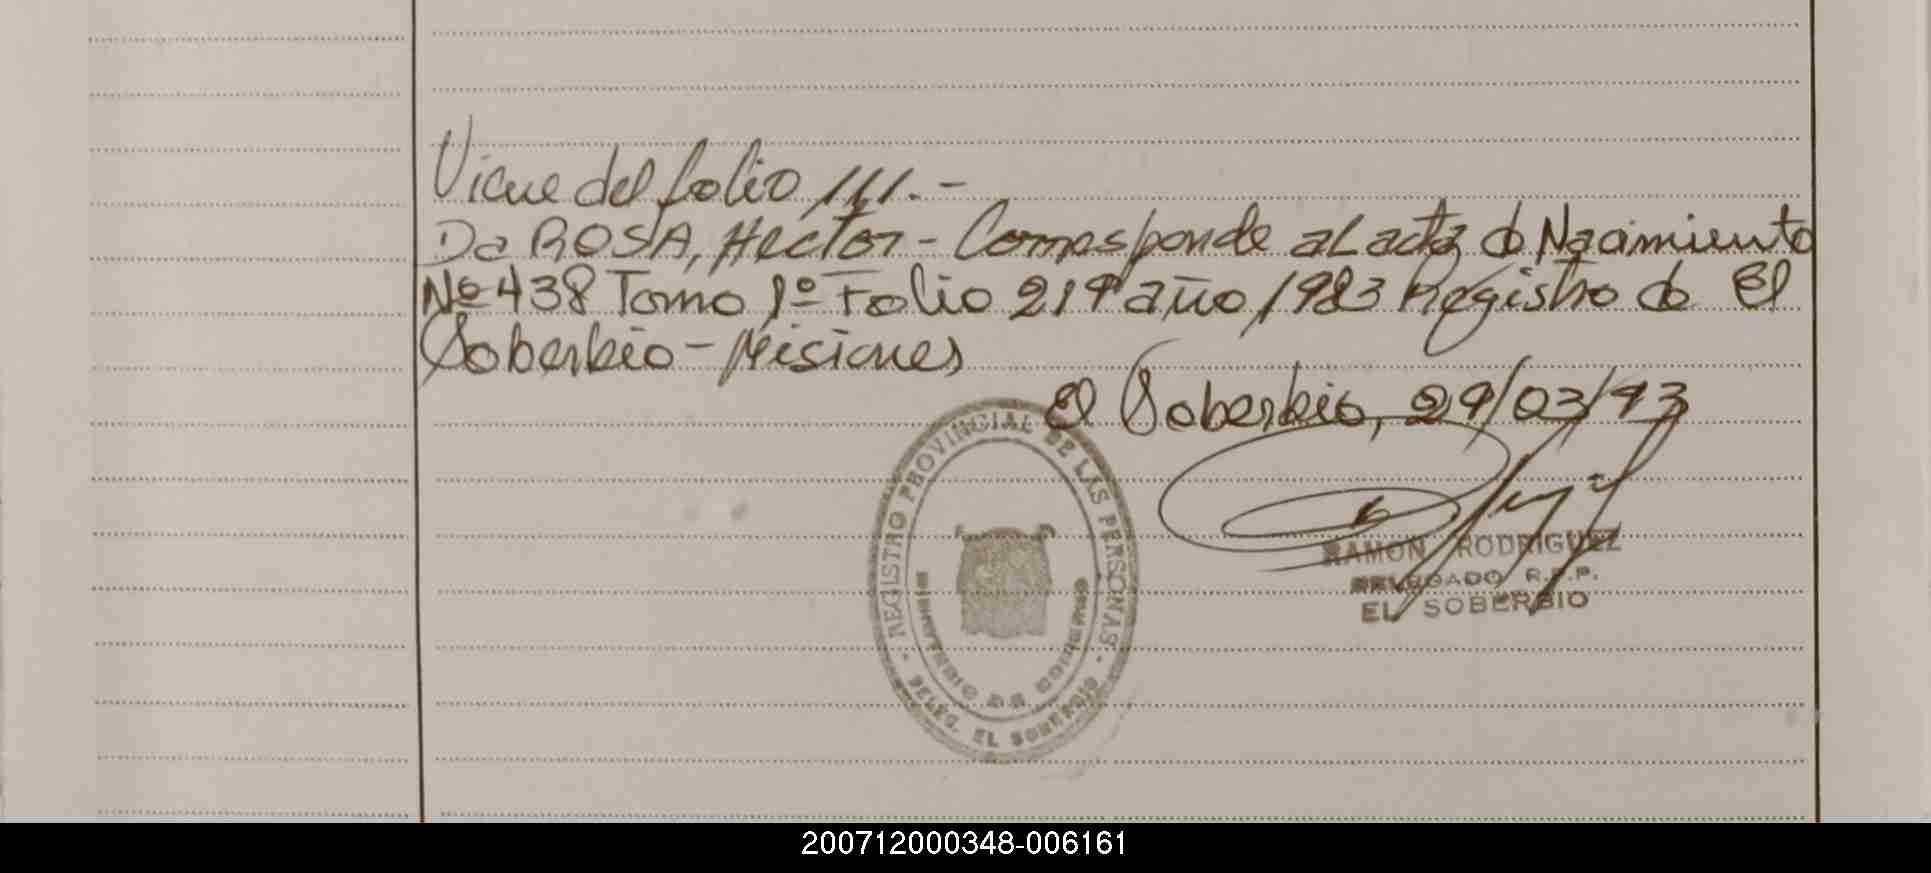 Viene del folio 111.-
Da ROSA, Hector - Corresponde al acta d Nacimiento
Nº 438 Tomo 1º Folio 219 año 1983 Registro do El
Soberbio - Misiones
El Soberbio, 29/03/93
REGISTRO PROVINCIAL DE LAS PERSONAS
MINISTERIO DE GOBIERNO
DELEG. EL SOBERBIO
RAMON RODRIGUEZ
DELEGADO R.P.P.
EL SOBERBIO
200712000348-006161